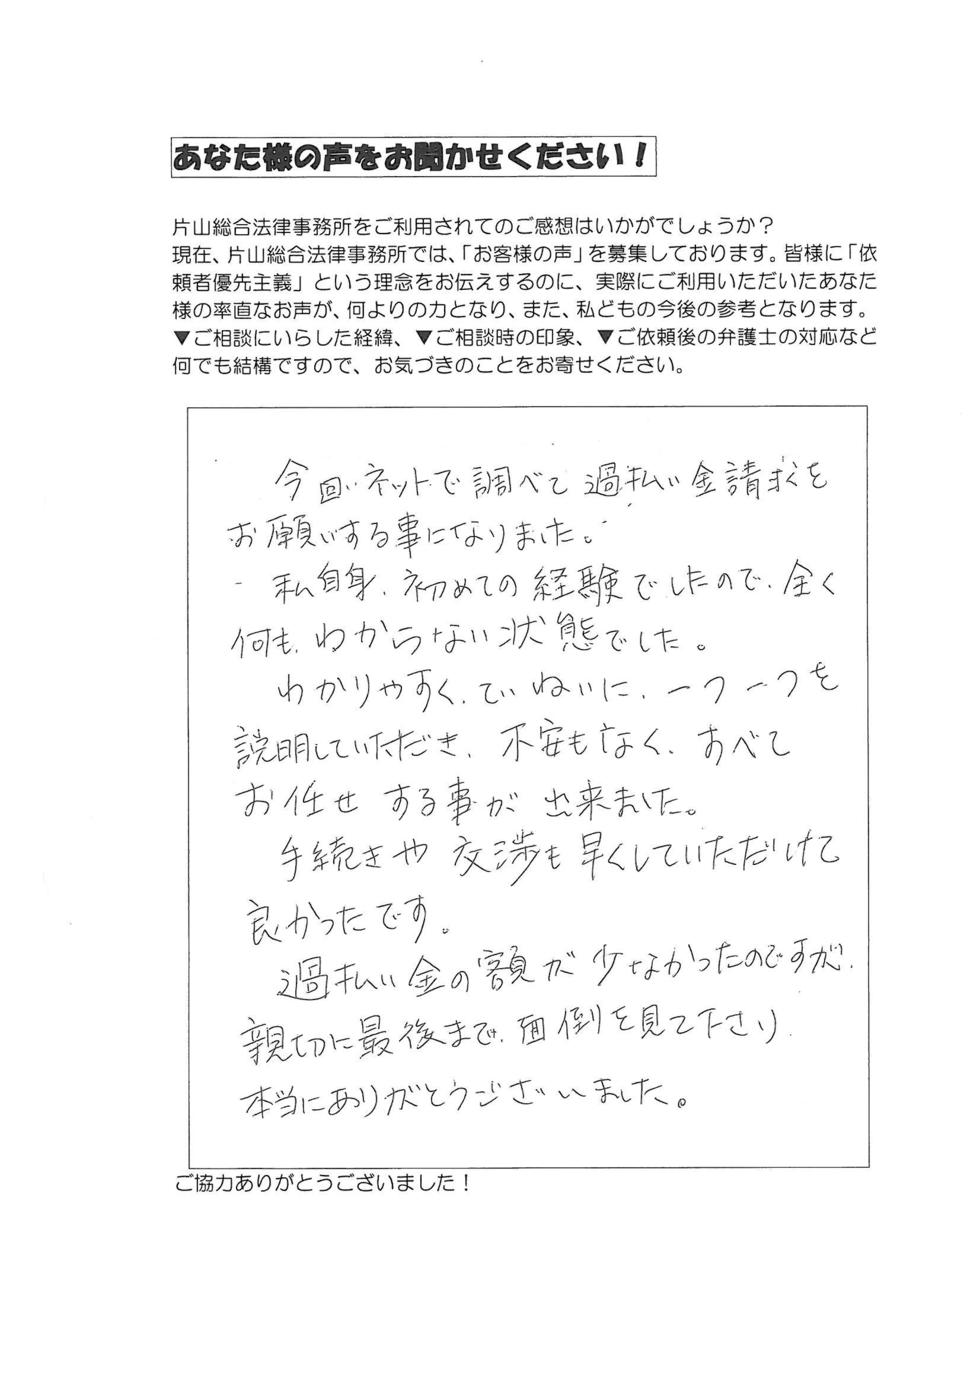 あなた様の声をお聞かせください！
片山総合法律事務所をご利用されてのご感想はいかがでしょうか？
現在、片山総合法律事務所では、「お客様の声」を募集しております。皆様に「依
頼者優先主義」という理念をお伝えするのに、実際にご利用いただいたあなた
様の率直なお声が、何よりの力となり、また、私どもの今後の参考となります。
▼ご相談にいらした経緯、▼ご相談時の印象、▼ご依頼後の弁護士の対応など
何でも結構ですので、お気づきのことをお寄せください。
今回、ネットで調べて過払い金請求を
お願いする事になりました。
私自身、初めての経験でしたので、全く
何も、わからない状態でした。
わかりやすく、ていねいに、一つ一つを
説明していただき、不安もなく、すべて
お任せする事が出来ました。
手続きや交渉も早くしていただけて
良かったです。
過払い金の額が少なかったのですが、
親切に最後まで、面倒を見て下さり、
本当にありがとうございました。
ご協力ありがとうございました！